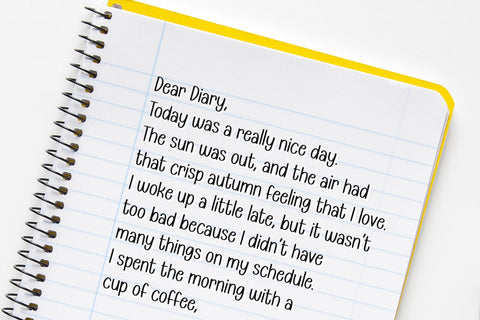 Dear Diary,
Today was a really nice day.
The sun was out, and the air had
that crisp autumn feeling that I love.
I woke up a little late, but it wasn't
too bad because I didn't have
many things on my schedule.
I spent the morning with a
cup of coffee,